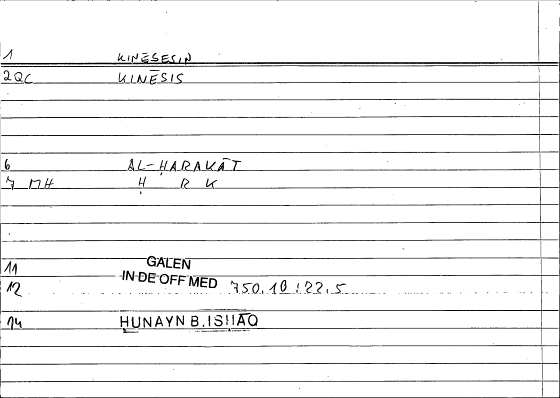 1 KINĒSESIN
2QC KINĒSIS
6 AL-ḤARAKĀT
7 MH Ḥ R K
11 GALEN
IN DE OFF MED
12 750.18:22.5
14 HUNAYN B. ISHAQ